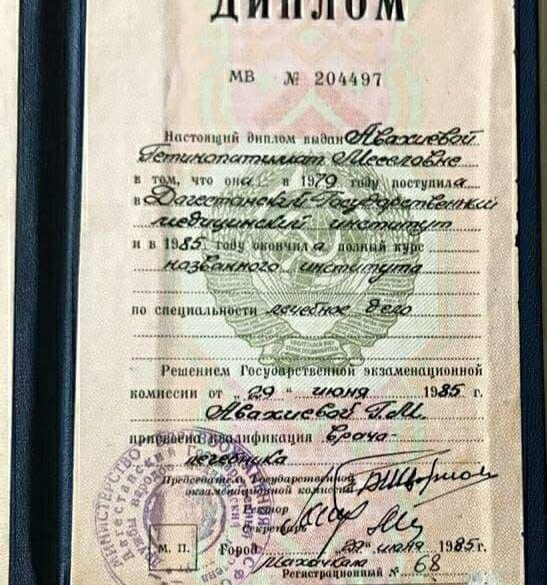 ДИПЛОМ
МВ № 204497
Настоящий диплом выдан Авахиевой
Гетинопатимат Меселовне
в том, что она в 1979 году поступила
в Дагестанский Государственный
медицинский институт
и в 1985 году окончила полный курс
названного института
по специальности лечебное дело
Решением Государственной экзаменационной
комиссии от „29“ июня 1985 г.
Авахиевой Г.М.
присвоена квалификация врача-
лечебника
Председатель Государственной
экзаменационной комиссии
Ректор
Секретарь
М. П. Город Махачкала „29“ июня 1985 г.
Регистрационный № 68
МИНИСТЕРСТВО ЗДРАВООХРАНЕНИЯ
Дагестанский